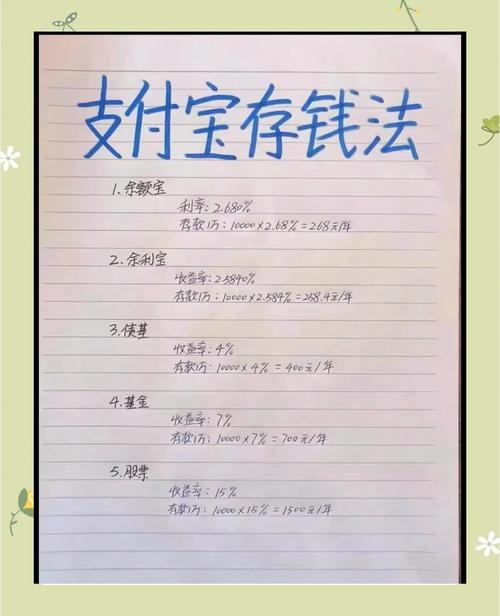 支付宝存钱法
1、余额宝
利率：2.680%
存款1万：10000×2.68%=268元/年
2、余利宝
收益率：2.5840%
存款1万：10000×2.584%=258.4元/年
3、债基
收益率：4%
存款1万：10000×4%=400元/年
4、基金
收益率：7%
存款1万：10000×7%=700元/年
5、股票
收益率：15%
存款1万：10000×15%=1500元/年